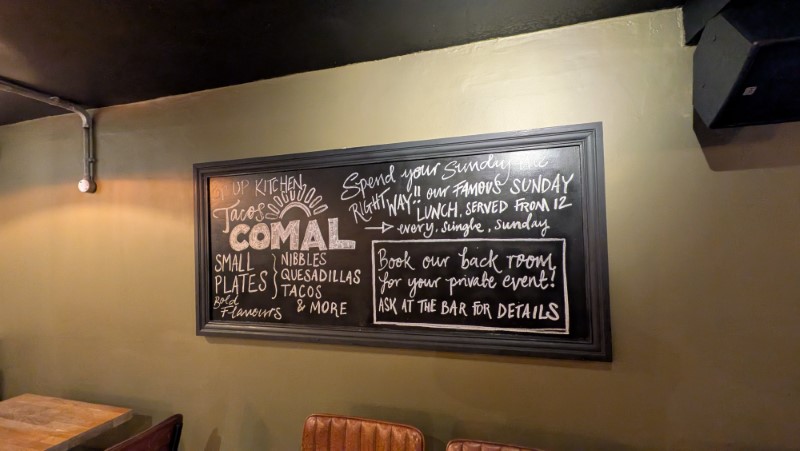 UP KITCHEN
Tacos
COMAL
SMALL
PLATES
Bold
Flavours
NIBBLES
QUESADILLAS
TACOS
& MORE
Spend your Sunday the
RIGHT WAY!! our FAMOUS SUNDAY
LUNCH, SERVED FROM 12
→ every, single, sunday
Book our back room
for your private event!
ASK AT THE BAR FOR DETAILS